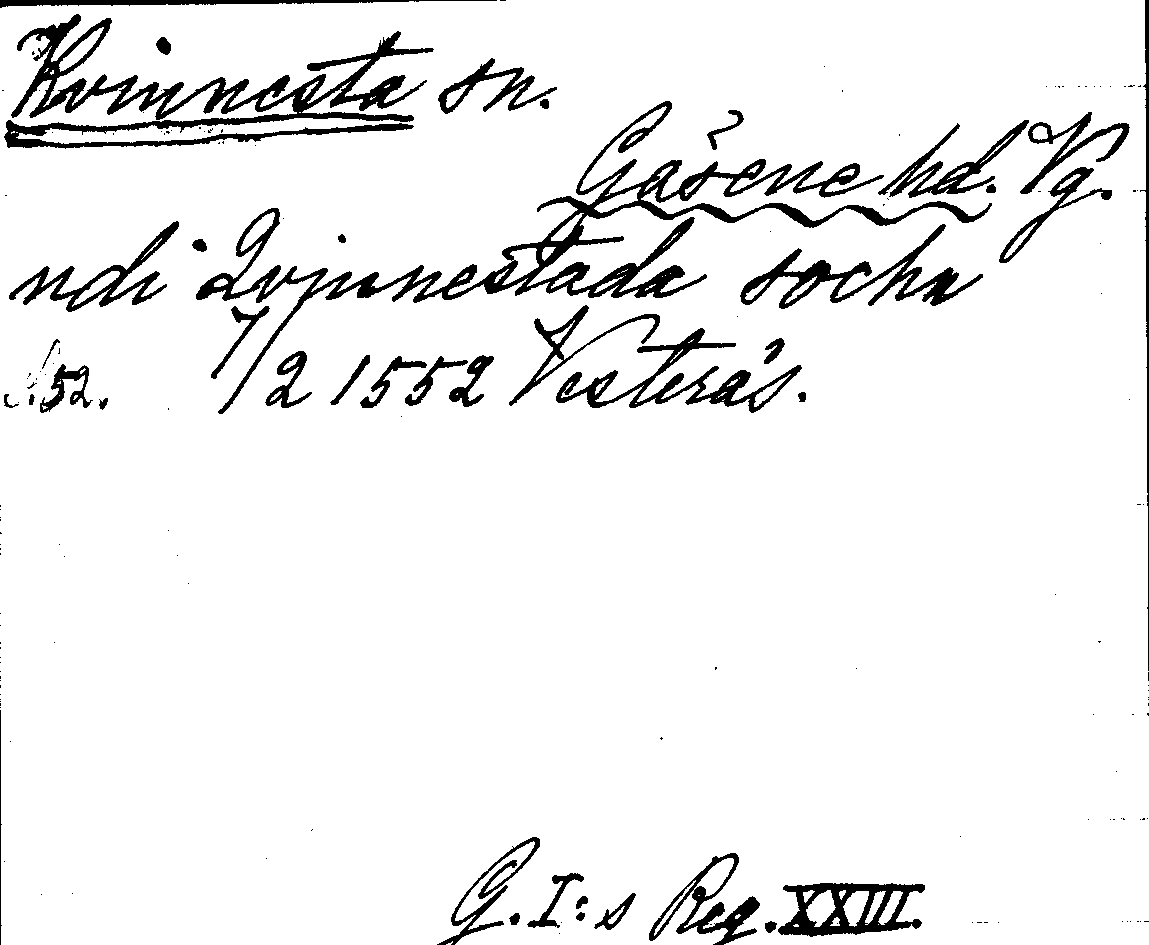 Kvinnesta sn.
Gäsene hd. Vg.
udi Qvinnestada sochn
S. 52. 7/2 1552 Vesterås.
G. I:s Reg. XXIII.